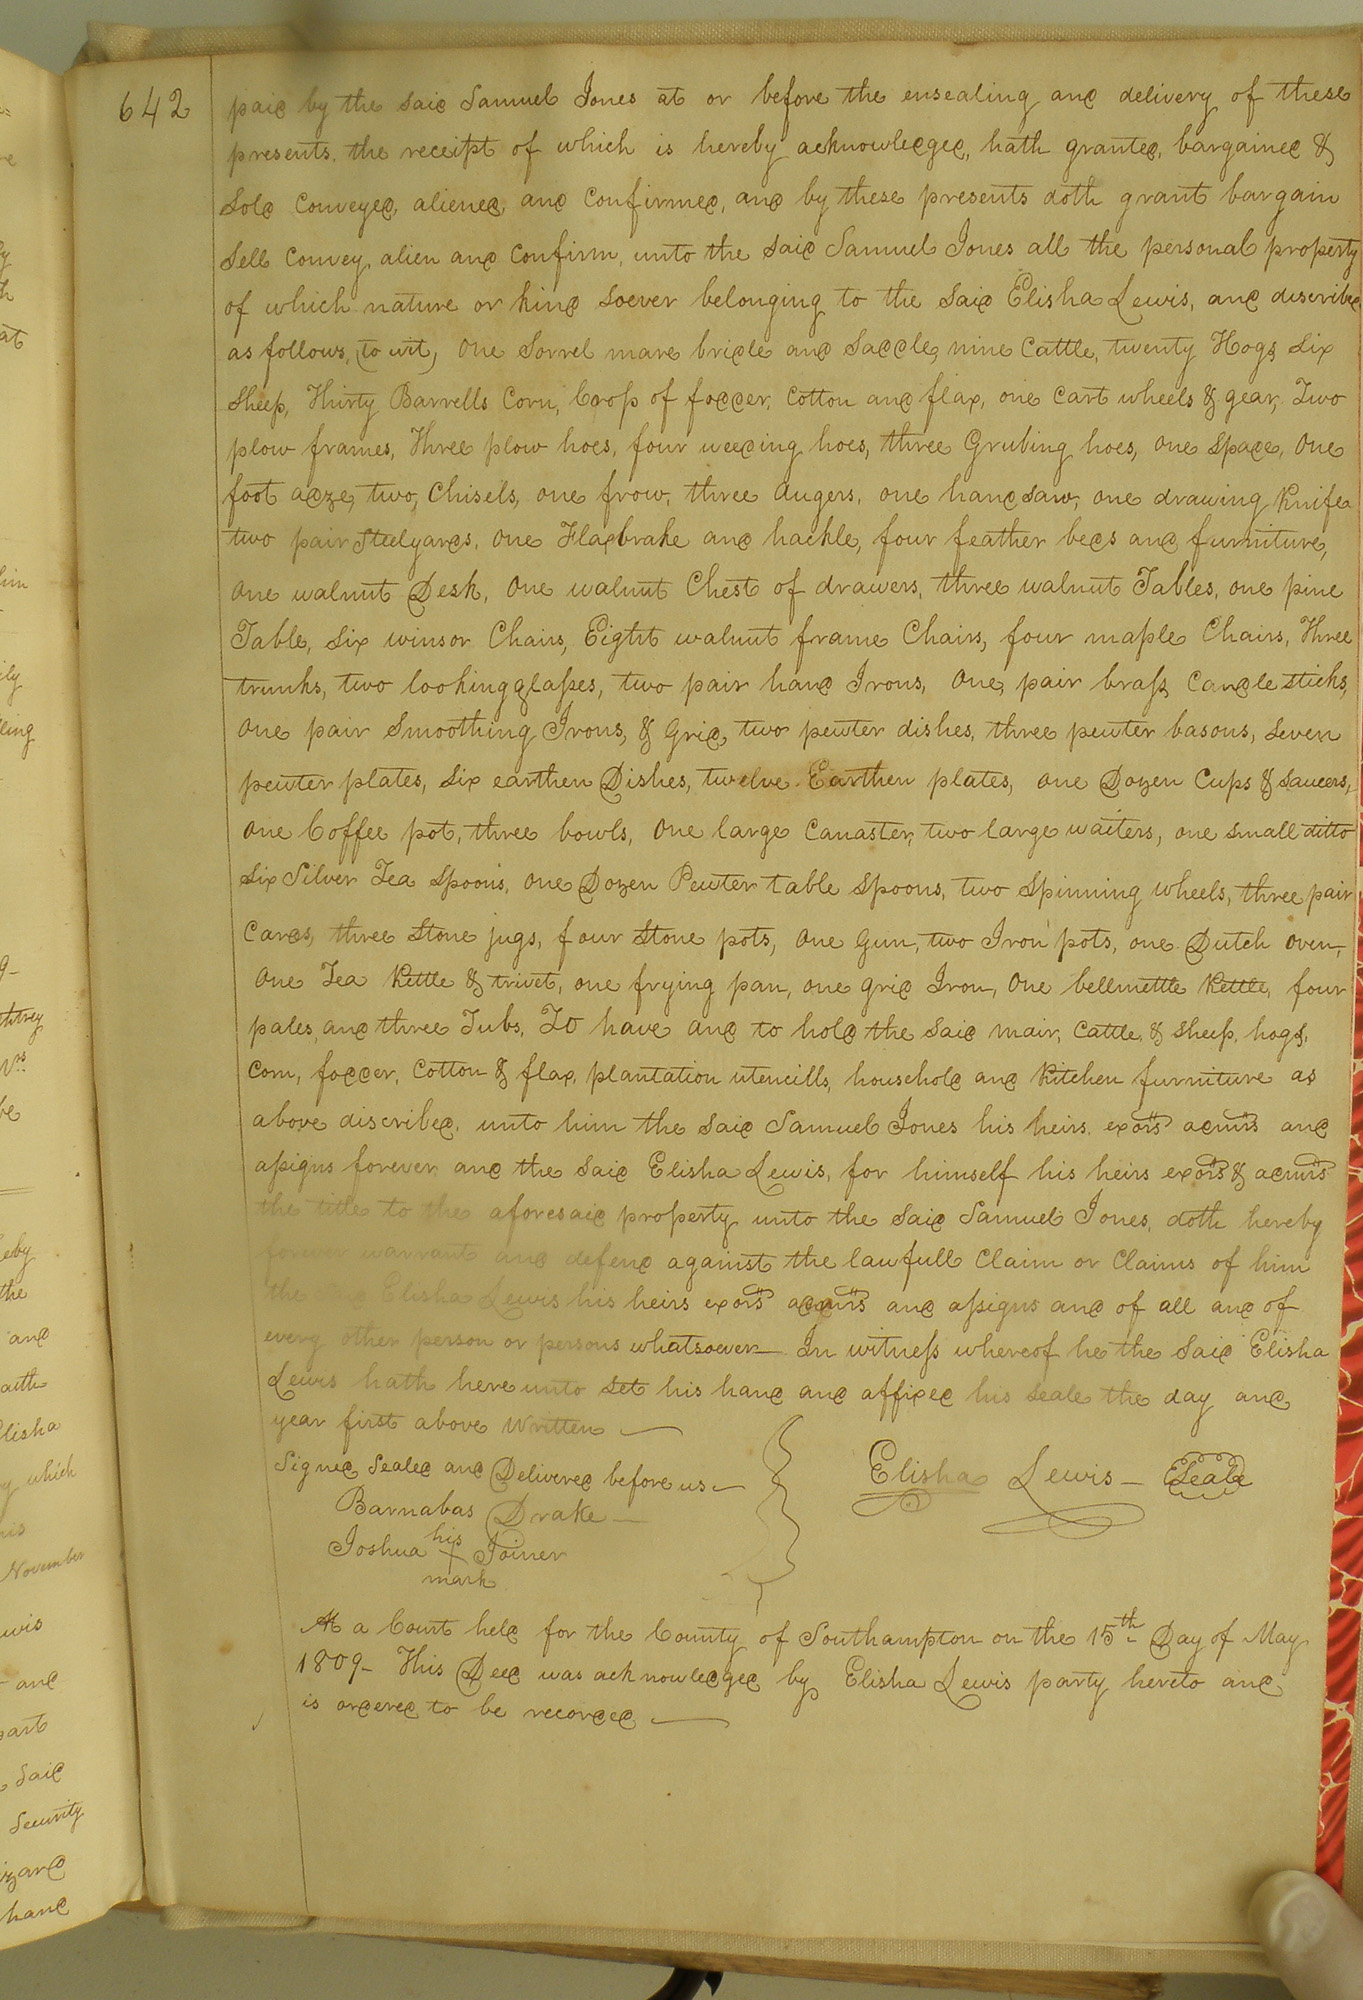 642
paid by the said Samuel Jones at or before the ensealing and delivery of these
presents. the receipt of which is hereby acknowledged, hath granted, bargained &
Sold Conveyed, aliened, and Confirmed, and by these presents doth grant bargain
Sell Convey, alien and Confirm, unto the said Samuel Jones all the personal property
of which nature or kind soever belonging to the said Elisha Lewis, and discribed
as follows, (to wit, One Sorrel mare bridle and Saddle, nine Cattle, twenty Hogs, Six
Sheep, Thirty Barrells Corn, Crop of fodder, Cotton and flax, one Cart wheels & gear, Two
plow frames, Three plow hoes, four weeding hoes, three Grubing hoes, one Spade, One
foot adze, two, Chisels, one frow, three Augers, one handsaw, one drawing Knife
two pair Steelyards, One Flaxbrake and hackle, four feather beds and furniture,
One walnut Desk, One walnut Chest of drawers, three walnut Tables, one pine
Table, Six winsor Chairs, Eight walnut frame Chairs, four maple Chairs, Three
trunks, two lookingglasses, two pair hand Irons, One, pair brass Candlesticks,
One pair Smoothing Irons, & Grid, two pewter dishes, three pewter basons, Seven
pewter plates, Six earthen Dishes, twelve Earthen plates, one Dozen Cups & Saucers,
One Coffee pot, three bowls, One large Canaster, two large waiters, one small ditto
Six Silver Tea Spoons, One Dozen Pewter table Spoons, two Spinning wheels, three pair
Cards, three Stone jugs, four Stone pots, One Gun, two Iron pots, one Dutch oven,
One Tea Kettle & trivet, one frying pan, one grid Iron, One bellmettle Kettle, four
pales, and three Tubs, To have and to hold the said mair, Cattle, & Sheep, hogs,
Corn, fodder, Cotton & flax, plantation utencills, household and Kitchen furniture as
above discribed, unto him the said Samuel Jones his heirs, exors admrs and
assigns forever and the said Elisha Lewis, for himself his heirs exors & admrs
the title to the aforesaid property unto the said Samuel Jones, doth hereby
forever warrant and defend against the lawfull Claim or Claims of him
the said Elisha Lewis his heirs exors admrs and assigns and of all and of
every other person or persons whatsoever In witness whereof he the said Elisha
Lewis hath here unto Set his hand and affixed his Seale the day and
year first above Written
Signed Sealed and Delivered before us Elisha Lewis Seale
Barnabas Drake
Joshua his + mark Joiner
At a Court held for the County of Southampton on the 15th Day of May
1809 This Deed was acknowledged by Elisha Lewis party hereto and
is ordered to be recorded